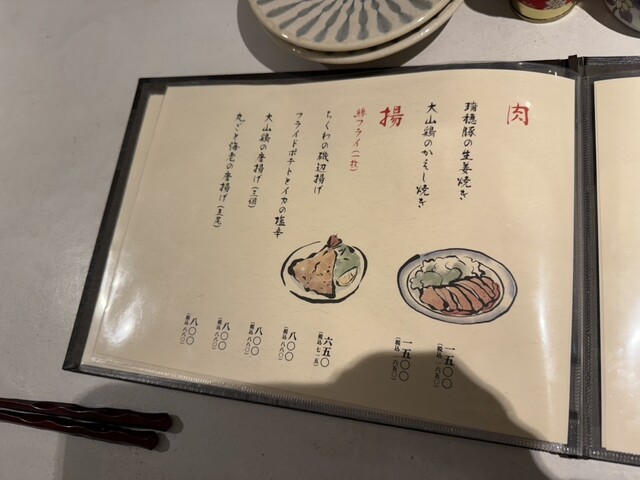 肉
瑞穂豚の生姜焼き
一五〇〇
(税込 一六五〇)
大山鶏のかえし焼き
一五〇〇
(税込 一六五〇)
揚
鯵フライ(一枚)
六五〇
(税込 七一五)
ちくわの磯辺揚げ
八〇〇
(税込 八八〇)
フライドポテトとイカの塩辛
八〇〇
(税込 八八〇)
大山鶏の唐揚げ(三個)
八〇〇
(税込 八八〇)
丸ごと海老の唐揚げ(五尾)
八〇〇
(税込 八八〇)